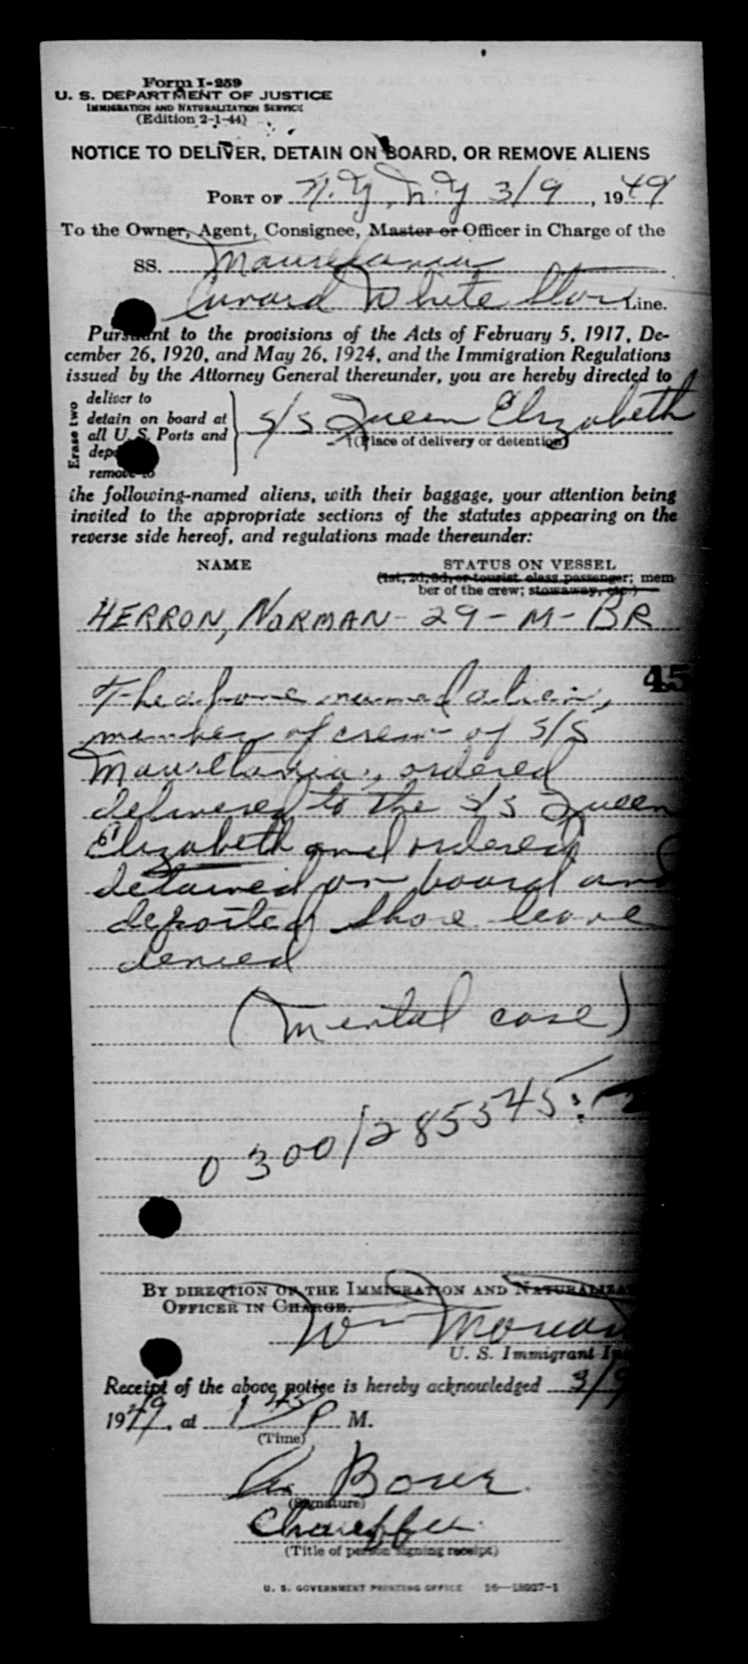 Form I-259
U. S. DEPARTMENT OF JUSTICE
IMMIGRATION AND NATURALIZATION SERVICE
(Edition 2-1-44)
NOTICE TO DELIVER, DETAIN ON BOARD, OR REMOVE ALIENS
PORT OF N.Y., N.Y 3/9, 1949
To the Owner, Agent, Consignee, Master or Officer in Charge of the
SS. Mauretania
Cunard White Star Line.
Pursuant to the provisions of the Acts of February 5, 1917, De-
cember 26, 1920, and May 26, 1924, and the Immigration Regulations
issued by the Attorney General thereunder, you are hereby directed to
Erase two
deliver to
detain on board at
all U. S. Ports and
remove to
S/S Queen Elizabeth
(Place of delivery or detention)
the following-named aliens, with their baggage, your attention being
invited to the appropriate sections of the statutes appearing on the
reverse side hereof, and regulations made thereunder:
NAME STATUS ON VESSEL
(1st, 2d, 3d, or tourist class passenger; mem-
ber of the crew; stowaway, etc.)
HERRON, NORMAN - 29 - M - BR
45
The above named alien,
member of crew of S/S
Mauretania, ordered
delivered to the S/S Queen
Elizabeth and ordered
detained on board and
deported shore leave
denied
(mental case)
0300/285545:
BY DIRECTION OF THE IMMIGRATION AND NATURALIZA
OFFICER IN CHARGE.
Wm
U. S. Immigrant In
Receipt of the above notice is hereby acknowledged 3/9
1949, at 1 45 P M.
(Time)
(Signature)
Chauffeur
(Title of person signing receipt)
U. S. GOVERNMENT PRINTING OFFICE 16—18027-1